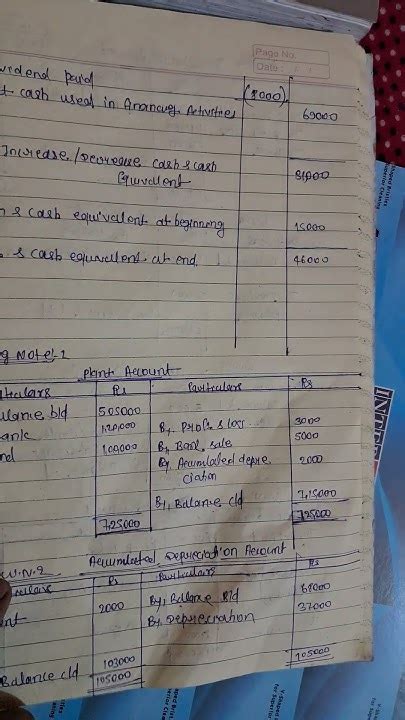 Page No.
Date: / /
vidend paid (8000)
t cash used in Anancueg Activities 69000
Increase/Decrease cash & cash
Equivalent
h & cash equivalent at beginning 15000
& cash equivalent at end. 46000
g Note:-1
Plant Account
ticulars Rs Particulars Rs
alance b/d 505000
ank 120000 By, Profit & loss 3000
nd 100000 By, Bank sale 5000
By, Accumulated depre 2000
ciation
By, Balance c/d 715000
725000 725000
W.N.2 Accumulated Depreciation Account
iculars Rs Particulars Rs
nt 2000 By, Balance b/d 68000
By, Depreciation 37000
Balance c/d 103000
105000 105000